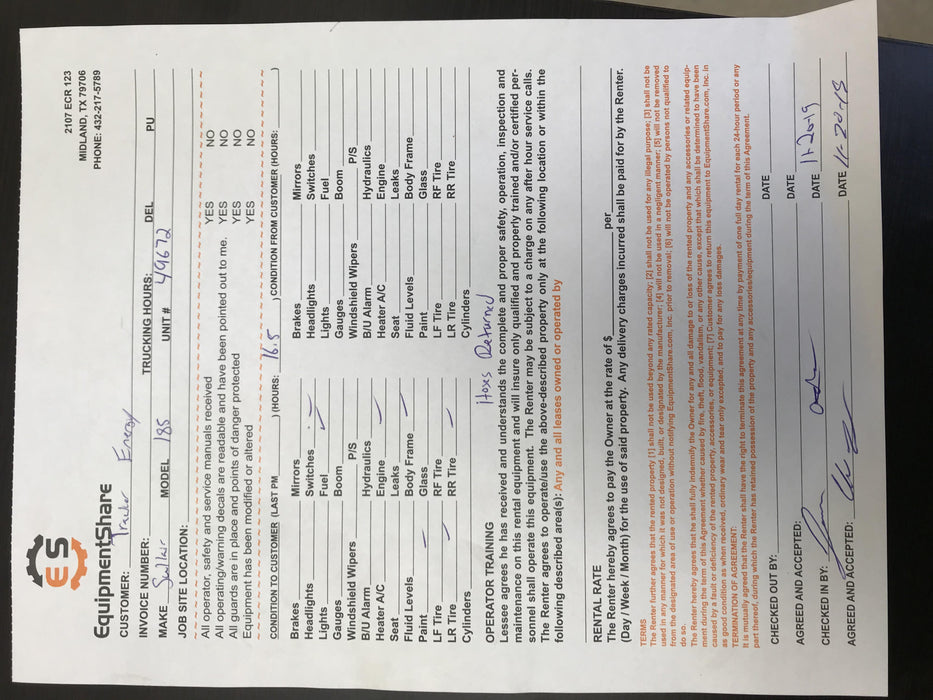 ES
EquipmentShare
2107 ECR 123
MIDLAND, TX 79706
PHONE: 432-217-5789
CUSTOMER: Tracker Energy
INVOICE NUMBER: TRUCKING HOURS: DEL PU
MAKE Sullair MODEL 185 UNIT # 49672
JOB SITE LOCATION:
All operator, safety and service manuals received YES NO
All operating/warning decals are readable and have been pointed out to me. YES NO
All guards are in place and points of danger protected YES NO
Equipment has been modified or altered YES NO
CONDITION TO CUSTOMER (LAST PM ) (HOURS: 16.5 ) CONDITION FROM CUSTOMER (HOURS: )
Brakes Mirrors Brakes Mirrors
Headlights Switches Headlights Switches
Lights Fuel Lights Fuel
Gauges Boom Gauges Boom
Windshield Wipers P/S Windshield Wipers P/S
B/U Alarm Hydraulics B/U Alarm Hydraulics
Heater A/C Engine Heater A/C Engine
Seat Leaks Seat Leaks
Fluid Levels Body Frame Fluid Levels Body Frame
Paint Glass Paint Glass
LF Tire RF Tire LF Tire RF Tire
LR Tire RR Tire LR Tire RR Tire
Cylinders Cylinders
OPERATOR TRAINING Hoses Returnd
Lessee agrees he has received and understands the complete and proper safety, operation, inspection and
maintenance on this rental equipment and will insure only qualified and properly trained and/or certified per-
sonnel shall operate this equipment. The Renter may be subject to a charge on any after hour service calls.
The Renter agrees to operate/use the above-described property only at the following location or within the
following described area(s): Any and all leases owned or operated by
RENTAL RATE
The Renter hereby agrees to pay the Owner at the rate of $ per
(Day / Week / Month) for the use of said property. Any delivery charges incurred shall be paid for by the Renter.
TERMS
The Renter further agrees that the rented property [1] shall not be used beyond any rated capacity; [2] shall not be used for any illegal purpose; [3] shall not be
used in any manner for which it was not designed, built, or designated by the manufacturer; [4] will not be used in a negligent manner; [5] will not be removed
from the designated area of use or operation without notifying EquipmentShare.com, Inc. prior to removal; [6] will not be operated by persons not qualified to
do so.
The Renter hereby agrees that he shall fully indemnify the Owner for any and all damage to or loss of the rented property and any accessories or related equip-
ment during the term of this Agreement whether caused by fire, theft, flood, vandalism, or any other cause, except that which shall be determined to have been
caused by a fault or deficiency of the rented property, accessories, or equipment; [7] Customer agrees to return this equipment to EquipmentShare.com, Inc. in
as good condition as when received, ordinary wear and tear only excepted, and to pay for any loss damages.
TERMINATION OF AGREEMENT:
It is mutually agreed that the Renter shall have the right to terminate this agreement at any time by payment of one full day rental for each 24-hour period or any
part thereof, during which the Renter has retained possession of the property and any accessories/equipment during the term of this Agreement.
CHECKED OUT BY: DATE
AGREED AND ACCEPTED: DATE
CHECKED IN BY: DATE 11-20-19
AGREED AND ACCEPTED: DATE 11-20-19